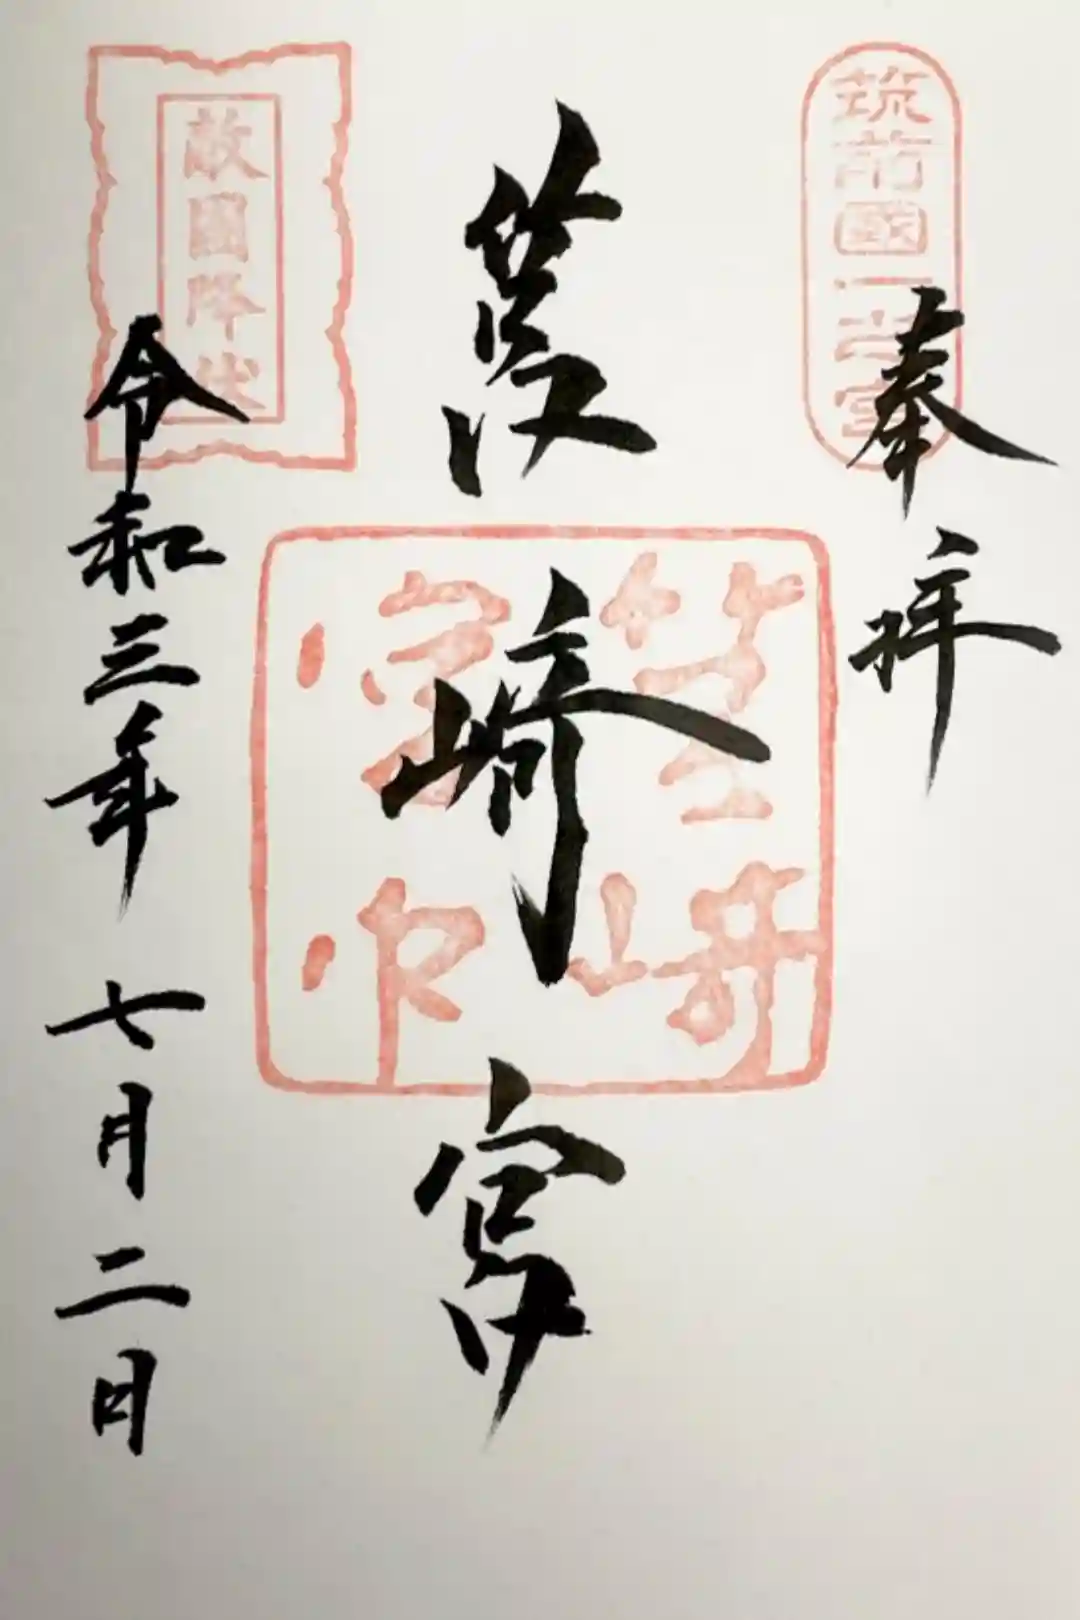 筑前國一之宮
奉拝
筥崎宮
筥崎
宮印
敵國降伏
令和三年 七月二日